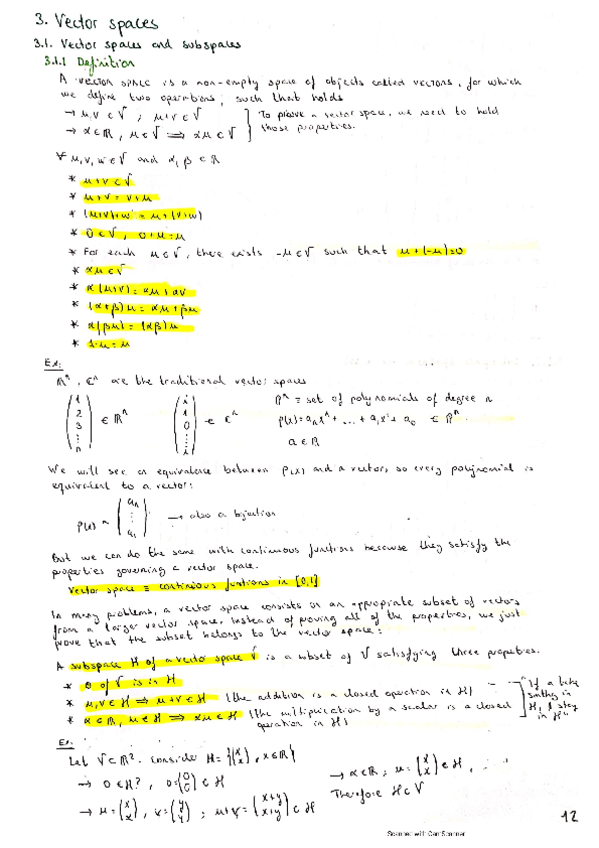 3. Vector spaces
3.1. Vector spaces and subspaces
3.1.1 Definition
A vector space is a non-empty space of objects called vectors, for which
we define two operations, such that holds
→ u,v ∈ V ; u+v ∈ V ] To prove a vector space, we need to hold
→ α∈R, u∈V ⟹ αu ∈ V those properties.
∀ u,v,w ∈ V and α,β ∈ R
* u+v ∈ V
* u+v = v+u
* (u+v)+w = u+(v+w)
* 0∈V, 0+u=u
* For each u∈V, there exists -u∈V such that u+(-u)=0
* αu∈V
* α(u+v) = αu+αv
* (α+β)u = αu+βu
* α(βu) = (αβ)u
* 1·u=u
Ex:
Rⁿ, Cⁿ are the traditional vector spaces
(1 2 3 ⋮ n) ∈ Rⁿ (i 1 0 ⋮ i) ∈ Cⁿ Pⁿ ≡ set of polynomials of degree n
p(x)=aₙxⁿ+ ... + a₁x¹+ a₀ ∈ Pⁿ
a ∈ R
We will see an equivalence between p(x) and a vector, so every polynomial is
equivalent to a vector:
p(x) ~ (aₙ ⋮ a₁) → also a bijection
But we can do the same with continuous functions because they satisfy the
properties governing a vector space.
Vector space ≡ continious funtions in [0,1]
In many problems, a vector space consists on an appropriate subset of vectors
from a larger vector space. Instead of proving all of the properties, we just
prove that the subset belongs to the vector space:
A subspace H of a vector space V is a subset of V satisfying three properties.
* 0 of V is in H
* u,v∈H ⟹ u+v∈H (the addition is a closed operation in H)
* α∈R, u∈H ⟹ αu∈H (the multiplication by a scalar is a closed
operation in H)
"If u take
in
H, I stay
in H"
Ex.
Let V⊂R². Consider H={(x x), x∈R}
→ 0∈H?, 0=(0 0) ∈ H
→ u=(x x), v=(y y) ; u+v=(x+y x+y) ∈ H
→ α∈R; u=(x x)∈H,
Therefore H⊂V
12
Scanned with CamScanner